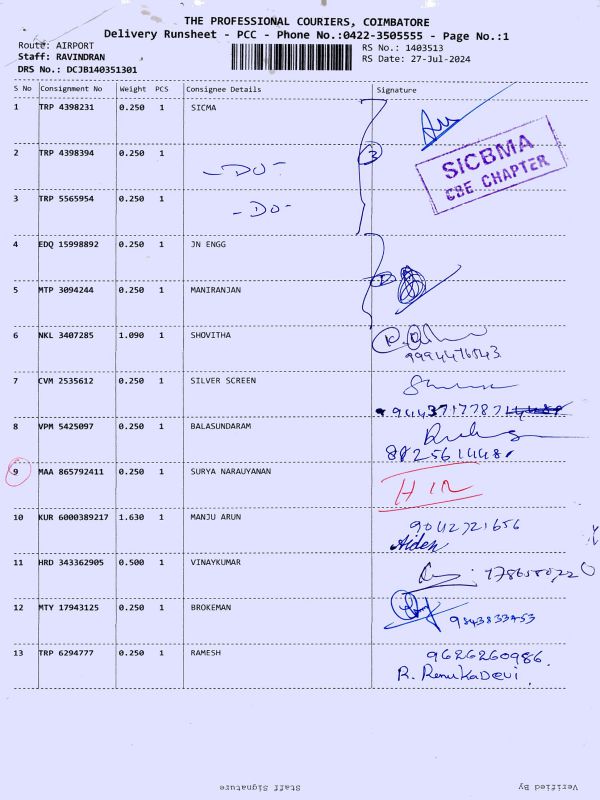 THE PROFESSIONAL COURIERS, COIMBATORE
Delivery Runsheet - PCC - Phone No.:0422-3505555 - Page No.:1
Route: AIRPORT RS No.: 1403513
Staff: RAVINDRAN RS Date: 27-Jul-2024
DRS No.: DCJB140351301
S No Consignment No Weight PCS Consignee Details Signature
1 TRP 4398231 0.250 1 SICMA
SICBMA
CBE CHAPTER
2 TRP 4398394 0.250 1 -DO- 3
3 TRP 5565954 0.250 1 -DO-
4 EDQ 15998892 0.250 1 JN ENGG
5 MTP 3094244 0.250 1 MANIRANJAN
6 NKL 3407285 1.090 1 SHOVITHA
9994476543
7 CVM 2535612 0.250 1 SILVER SCREEN
9443717787
8 VPM 5425097 0.250 1 BALASUNDARAM
9 MAA 865792411 0.250 1 SURYA NARAUYANAN
10 KUR 6000389217 1.630 1 MANJU ARUN 9042721656
Aiden
11 HRD 343362905 0.500 1 VINAYKUMAR
12 MTY 17943125 0.250 1 BROKEMAN 9843833453
13 TRP 6294777 0.250 1 RAMESH 9626260986
R. RenuKaDevi
Staff Signature Verified By